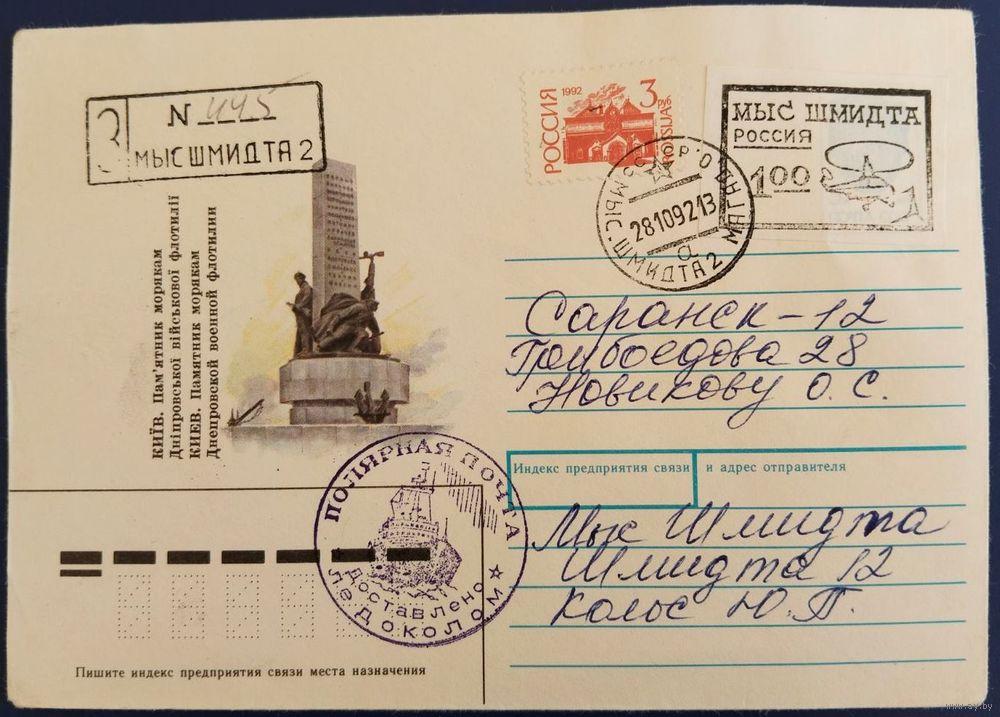 З N 445
МЫС ШМИДТА 2
РОССИЯ 1992 3 руб ROSSIJA
МЫС ШМИДТА
РОССИЯ
1 00
СССР
МЫС ШМИДТА 2 МАГАД.ОБ
28109213
а
КИЇВ. Пам'ятник морякам
Дніпровської військової флотилії
КИЕВ. Памятник морякам
Днепровской военной флотилии
Саранск-12
Грибоедова 28
Новикову О. С.
Индекс предприятия связи и адрес отправителя
Мыс Шмидта
Шмидта 12
Кольс Ю.П.
ПОЛЯРНАЯ ПОЧТА
Доставлено
ЛЕДОКОЛОМ
Пишите индекс предприятия связи места назначения